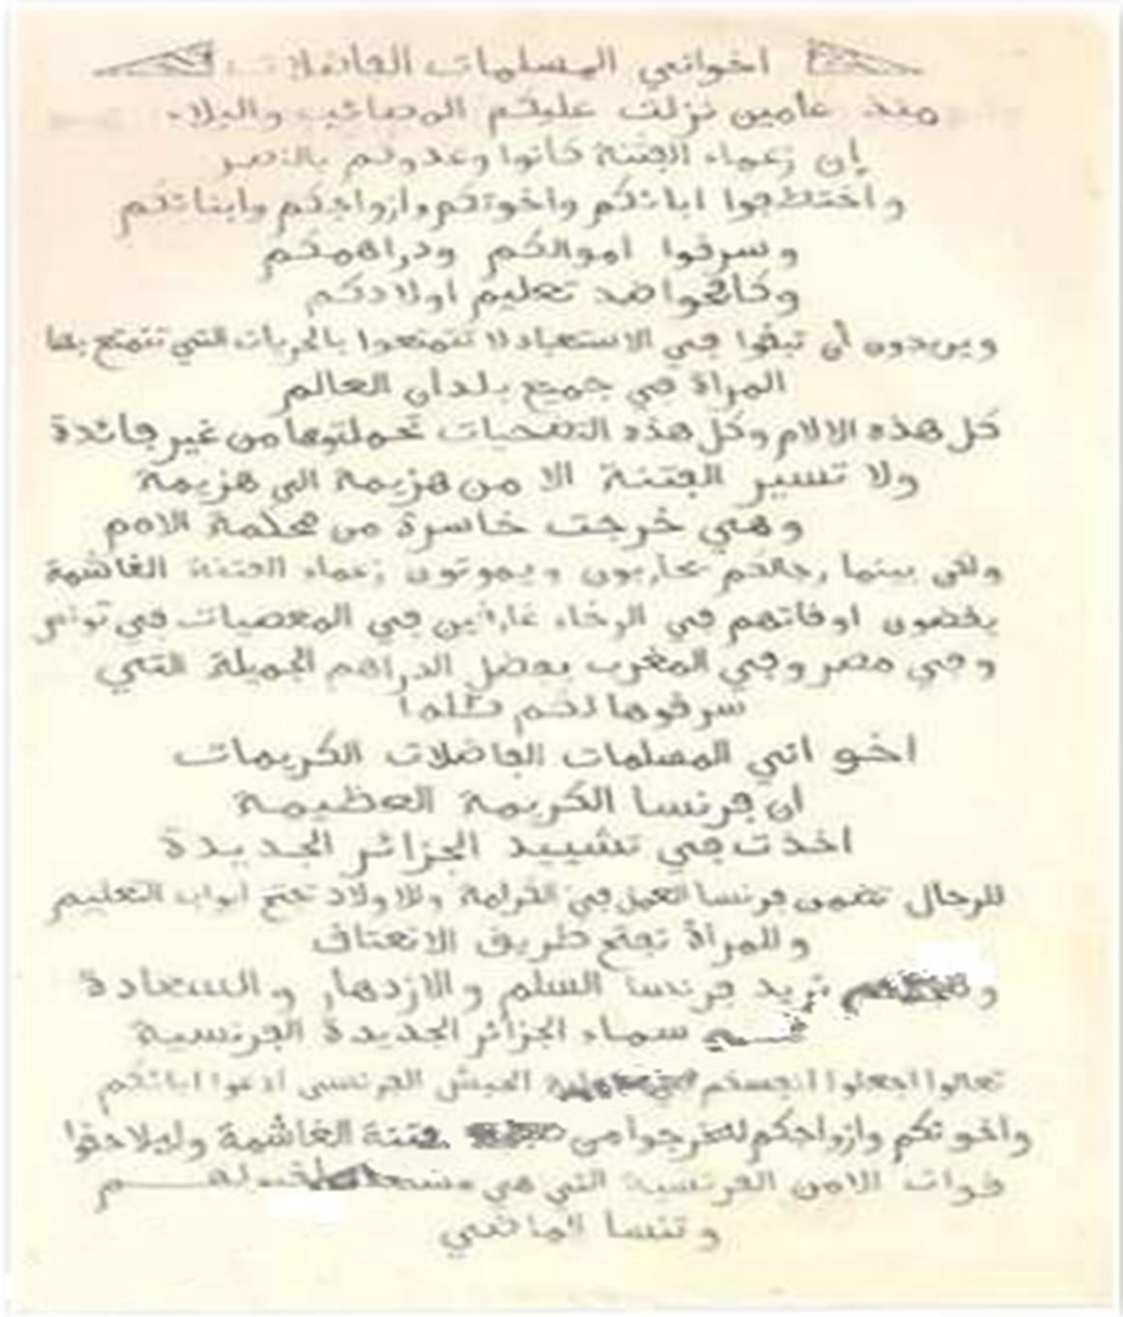 اخواتي المسلمات الفاضلات
منذ عامين نزلت عليكم المصائب والبلاء
إن زعماء الفتنة كانوا وعدوكم بالنصر
واختطفوا ابائكم واخوتكم وازواجكم وابنائكم
وسرقوا اموالكم ودراهمكم
وكافحوا ضد تعليم اولادكم
ويريدون أن تبقوا في الاستعباد لا تتمتعوا بالحريات التي تتمتع بها
المرأة في جميع بلدان العالم
كل هذه الالام وكل هذه التضحيات تحملتوها من غير فائدة
ولا تسير الفتنة الا من هزيمة الى هزيمة
وهي خرجت خاسرة من محكمة الامم
ولكن بينما رجالكم يحاربون ويموتون زعماء الفتنة الغاشمة
يقضون اوقاتهم في الرخاء غارقين في المعصيات في تونس
وفي مصر وفي المغرب بفضل الدراهم الجميلة التي
سرقوها لكم ظلما
اخواتي المسلمات الفاضلات الكريمات
ان فرنسا الكريمة العظيمة
اخذت في تشييد الجزائر الجديدة
للرجال تضمن فرنسا العمل في الكرامة وللاولاد تفتح ابواب التعليم
وللمرأة تفتح طريق الانعتاق
تريد فرنسا السلم والازدهار والسعادة
في سماء الجزائر الجديدة الفرنسية
تعالوا اجعلوا انفسكم الجيش الفرنسي ادعوا ابائكم
واخوتكم وازواجكم ليخرجوا من فتنة الغاشمة وليلاحقوا
قوات الامن الفرنسية التي هي
وتنسا الماضي